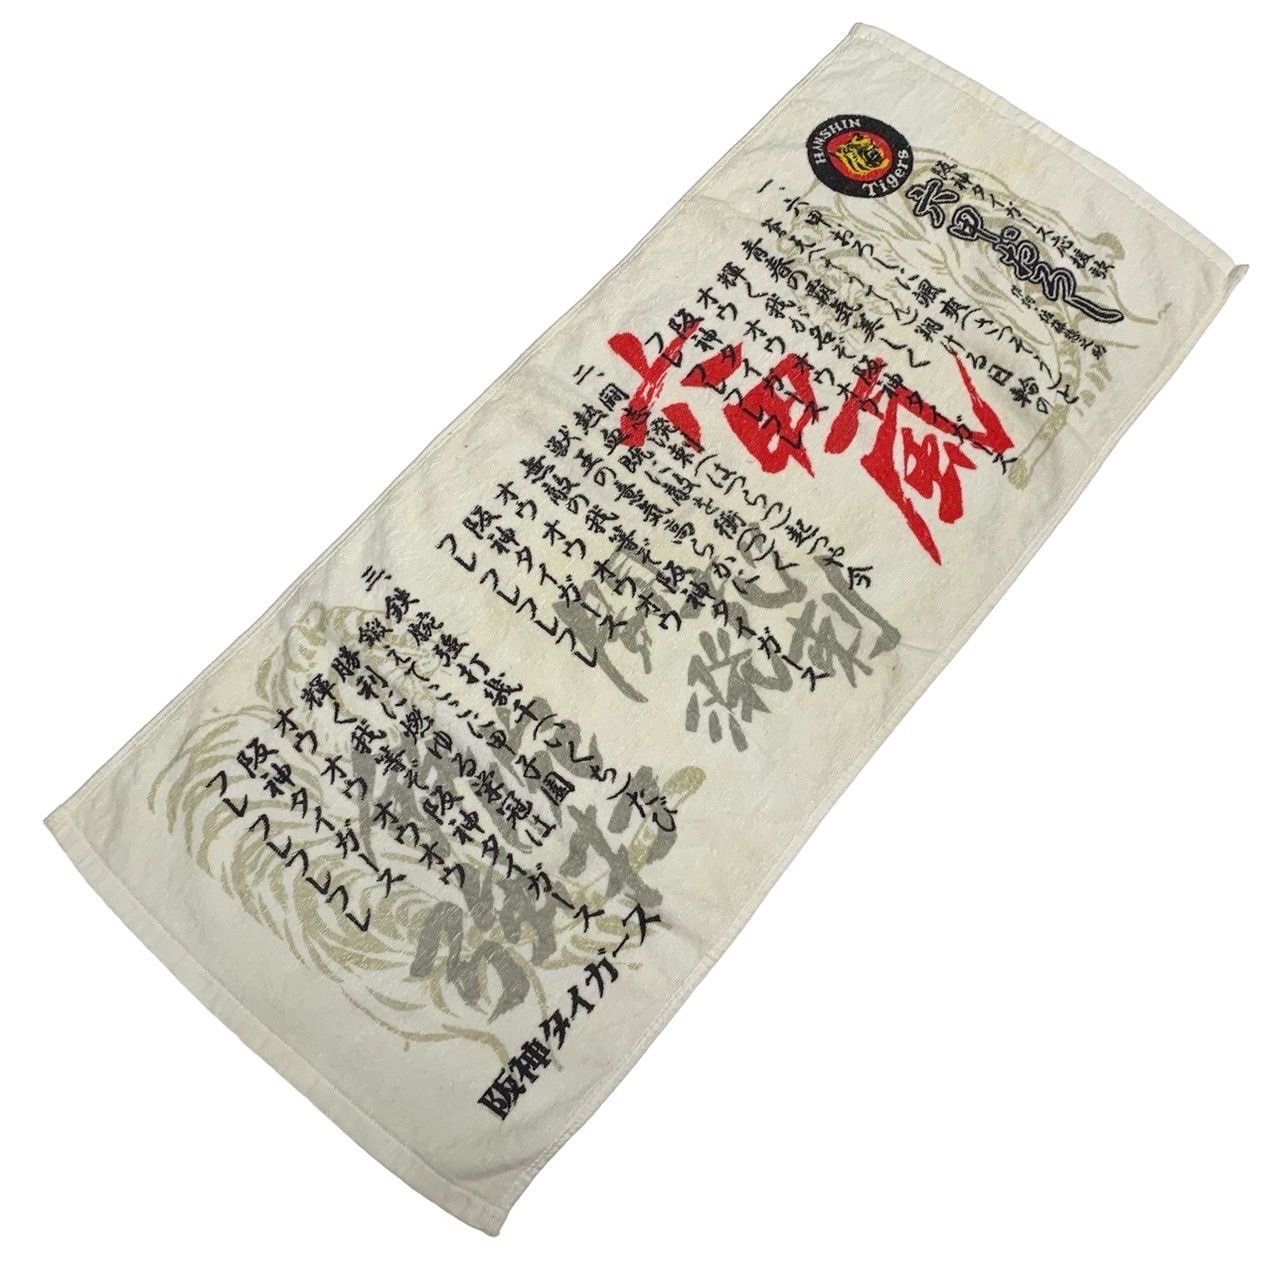 HANSHIN Tigers
阪神タイガース応援歌
六甲おろし
作詞・佐藤惣之助
六甲颪
一、六甲おろしに颯爽(さっそう)と
蒼天(そうてん)翔ける日輪の
青春の覇気美しく
輝く我が名ぞ阪神タイガース
オウオウ オウオウ
阪神タイガース
フレ フレフレフレ
闘志
溌剌
二、闘志溌剌(はつらつ)起つや今
熱血既に敵を衝(つ)く
獣王の意気高らかに
無敵の我等ぞ阪神タイガース
オウオウ オウオウ
阪神タイガース
フレ フレフレフレ
鉄腕
強打
三、鉄腕強打幾千(いくち)たび
鍛えてここに甲子園
勝利に燃ゆる栄冠は
輝く我等ぞ阪神タイガース
オウオウ オウオウ
阪神タイガース
フレ フレフレフレ
阪神タイガース